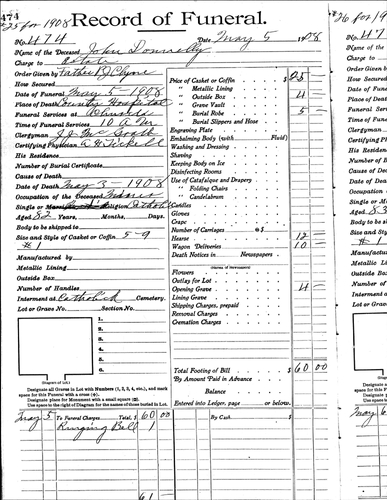 474
#25 for 1908
Record of Funeral.
No. 474 Date May 5 1908
Name of the Deceased John Donnelly
Charge to estate
Order Given by Father B J Clyne
How Secured
Date of Funeral May 5-1908
Place of Death County Hospital
Funeral Services at Church
Time of Funeral Services 10 A.M.
Clergyman
Certifying Physician
His Residence
Number of Burial Certificate
Cause of Death
Date of Death May 3-1908
Occupation of the Deceased Miner
Single or Married Religion Catholic
Aged 82 Years, Months, Days.
Body to be shipped to
Size and Style of Casket or Coffin 5-9
#1
Manufactured by
Metallic Lining
Outside Box
Number of Handles
Interment at Catholick Cemetery.
Lot or Grave No. Section No.
1.
2.
3.
4.
5.
6.
7.
8.
(Diagram of Lot.)
Designate all Graves in Lot with Numbers (1, 2, 3, 4, etc.), and mark
space for this Funeral with a cross (+).
Designate place for Monument with a small square (□).
Use space to the right of Diagram for the names of those buried in Lot.
Price of Casket or Coffin $ 25 —
" Metallic Lining
" Outside Box 4
" Grave Vault
" Burial Robe 5
" Burial Slippers and Hose
Engraving Plate
Embalming Body (with Fluid)
Washing and Dressing
Shaving
Keeping Body on Ice
Disinfecting Rooms
Use of Catafalque and Drapery
" Folding Chairs
" Candelabrum
Gloves
Crape
Number of Carriages @ $
Hearse 12 —
Wagon Deliveries 10 —
Death Notices in Newspapers
Flowers
Outlay for Lot
Opening Grave 4 —
Lining Grave
Shipping Charges, prepaid
Removal Charges
Cremation Charges
Total Footing of Bill $ 60 00
By Amount Paid in Advance
Balance
Entered into Ledger, page or below.
May 5 To Funeral Charges Total, $ 60 00 By Cash $
Ringing Bell 1
61
#26 for 19
No. 47
Name of the
Charge to
Order Given
How Secured
Date of Fune
Place of Dea
Funeral Ser
Time of Fun
Clergyman
Certifying P
His Reside
Number of B
Cause of De
Date of Dea
Occupation
Single or M
Aged 83
Body to be s
Size and St
#1
Manufactur
Metallic Lin
Outside Box
Number of
Interment a
Lot or Grav
May 6